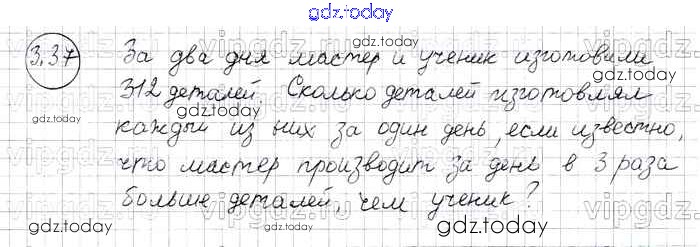 gdz.today
3.37 За два дня мастер и ученик изготовили
312 деталей. Сколько деталей изготовлял
каждый из них за один день, если известно,
что мастер производит за день в 3 раза
больше деталей, чем ученик?
gdz.today
gdz.today
gdz.today
gdz.today
gdz.today
gdz.today
gdz.today
gdz.today